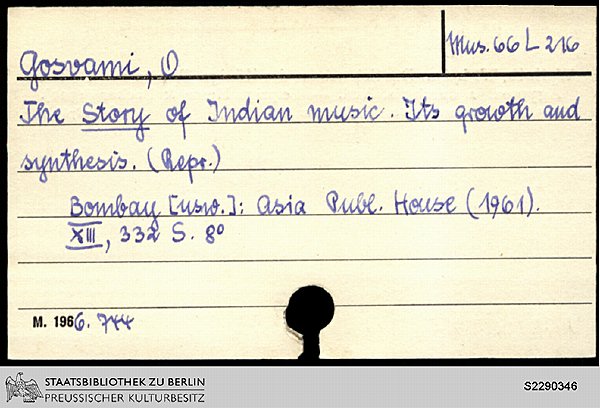 Mus. 66 L 216
Gosvami, O
The Story of Indian music. Its growth and
synthesis. (Repr.)
Bombay [usw.]: Asia Publ. House (1961).
XIII, 332 S. 8°
M. 1966. 744
STAATSBIBLIOTHEK ZU BERLIN
PREUSSISCHER KULTURBESITZ
S2290346